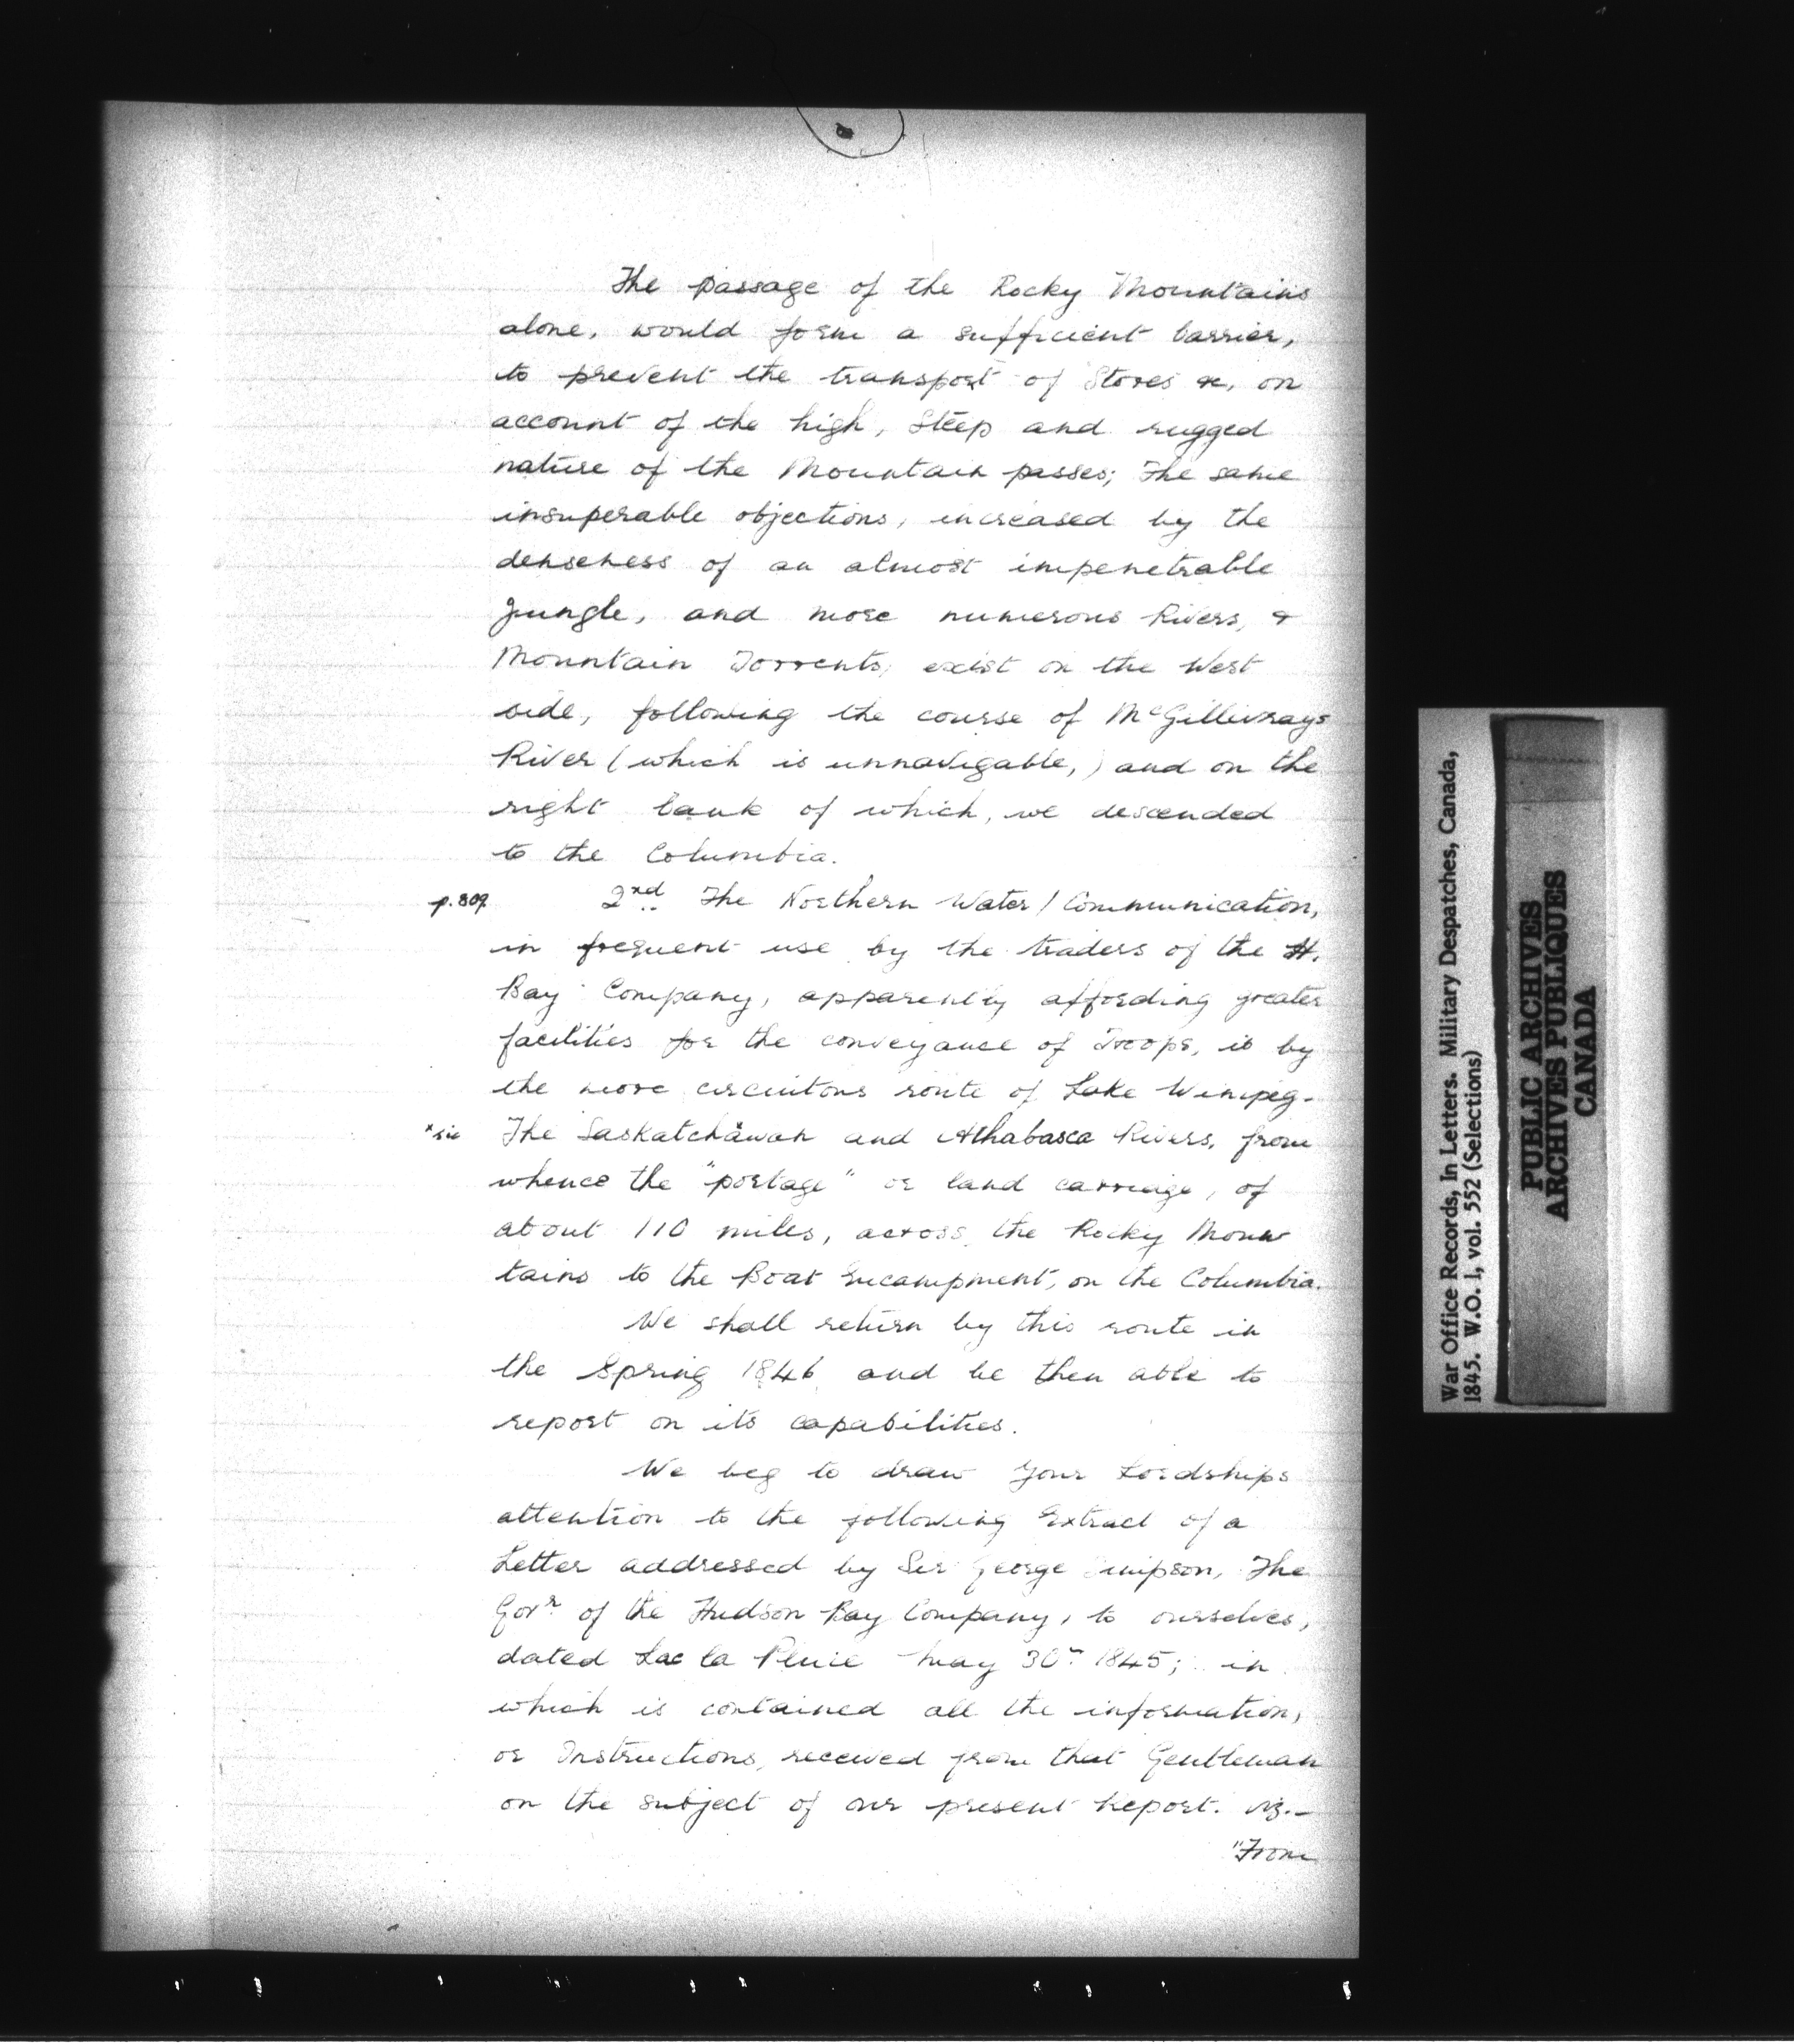 The passage of the Rocky Mountains
alone, would form a sufficient barrier,
to prevent the transport of Stores &c, on
account of the high, Steep and rugged
nature of the Mountain passes; The same
insuperable objections, increased by the
denseness of an almost impenetrable
Jungle, and more numerous Rivers, &
Mountain Torrents, exist on the West
side, following the course of McGillivrays
River (which is unnavigable,) and on the
right bank of which, we descended
to the Columbia.
p. 809. 2nd. The Northern Water / Communication,
in frequent use by the traders of the H.
Bay Company, apparently affording greater
facilities for the conveyance of Troops, is by
the more circuitous route of Lake Winipeg-
x sic The Saskatchawan and Athabasca Rivers, from
whence the "portage" or land carriage, of
about 110 miles, across the Rocky Moun-
tains to the Boat Encampment, on the Columbia.
We shall return by this route in
the Spring 1846 and be then able to
report on its capabilities.
We beg to draw Your Lordships
attention to the following Extract of a
Letter addressed by Sir George Simpson, The
Govr. of the Hudson Bay Company, to ourselves,
dated Lac la Pluie May 30th 1845; in
which is contained all the information,
or Instructions, received from that Gentleman
on the subject of our present Report. viz.-
"From
War Office Records, In Letters. Military Despatches, Canada,
1845. W.O. 1, vol. 552 (Selections)
PUBLIC ARCHIVES
ARCHIVES PUBLIQUES
CANADA